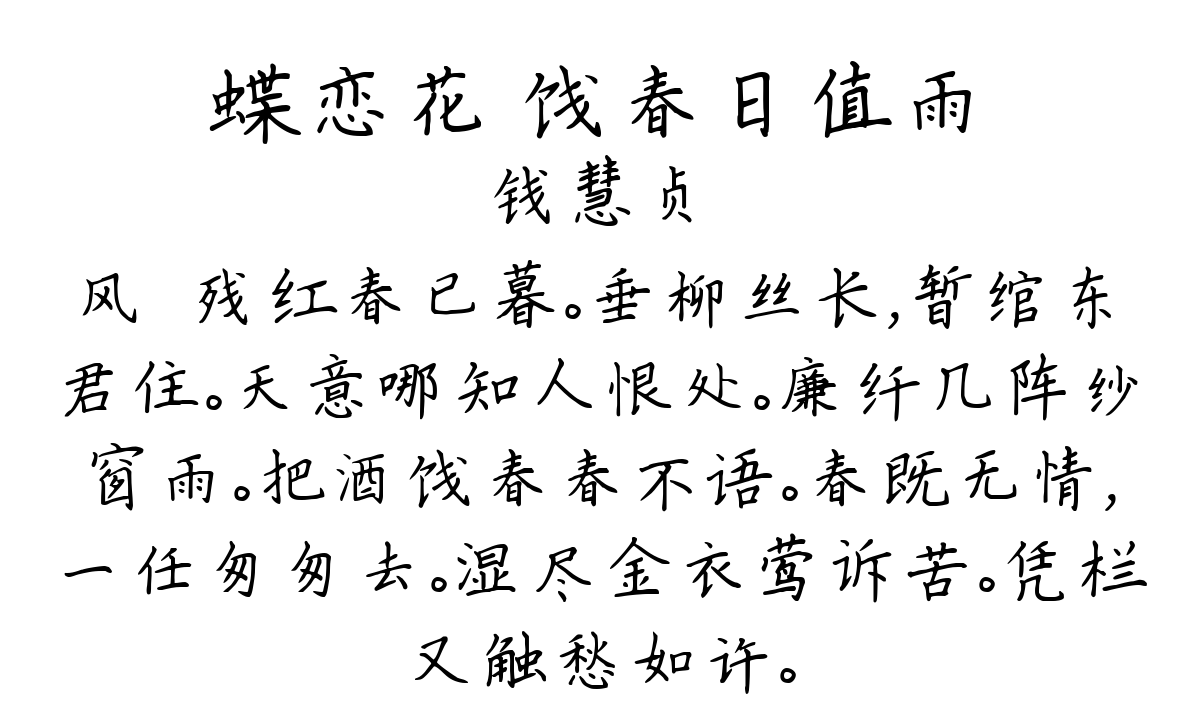 蝶恋花 饯春日值雨
钱慧贞
风 残红春已暮。垂柳丝长,暂绾东
君住。天意哪知人恨处。廉纤几阵纱
窗雨。把酒饯春春不语。春既无情,
一任匆匆去。湿尽金衣莺诉苦。凭栏
又触愁如许。